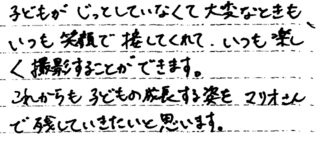 子どもが じっとしていなくて 大変なときも、
いつも 笑顔で 接してくれて、いつも 楽し
く 撮影することができます。
これからも 子どもの成長する姿を マリオさん
で 残していきたいと 思います。